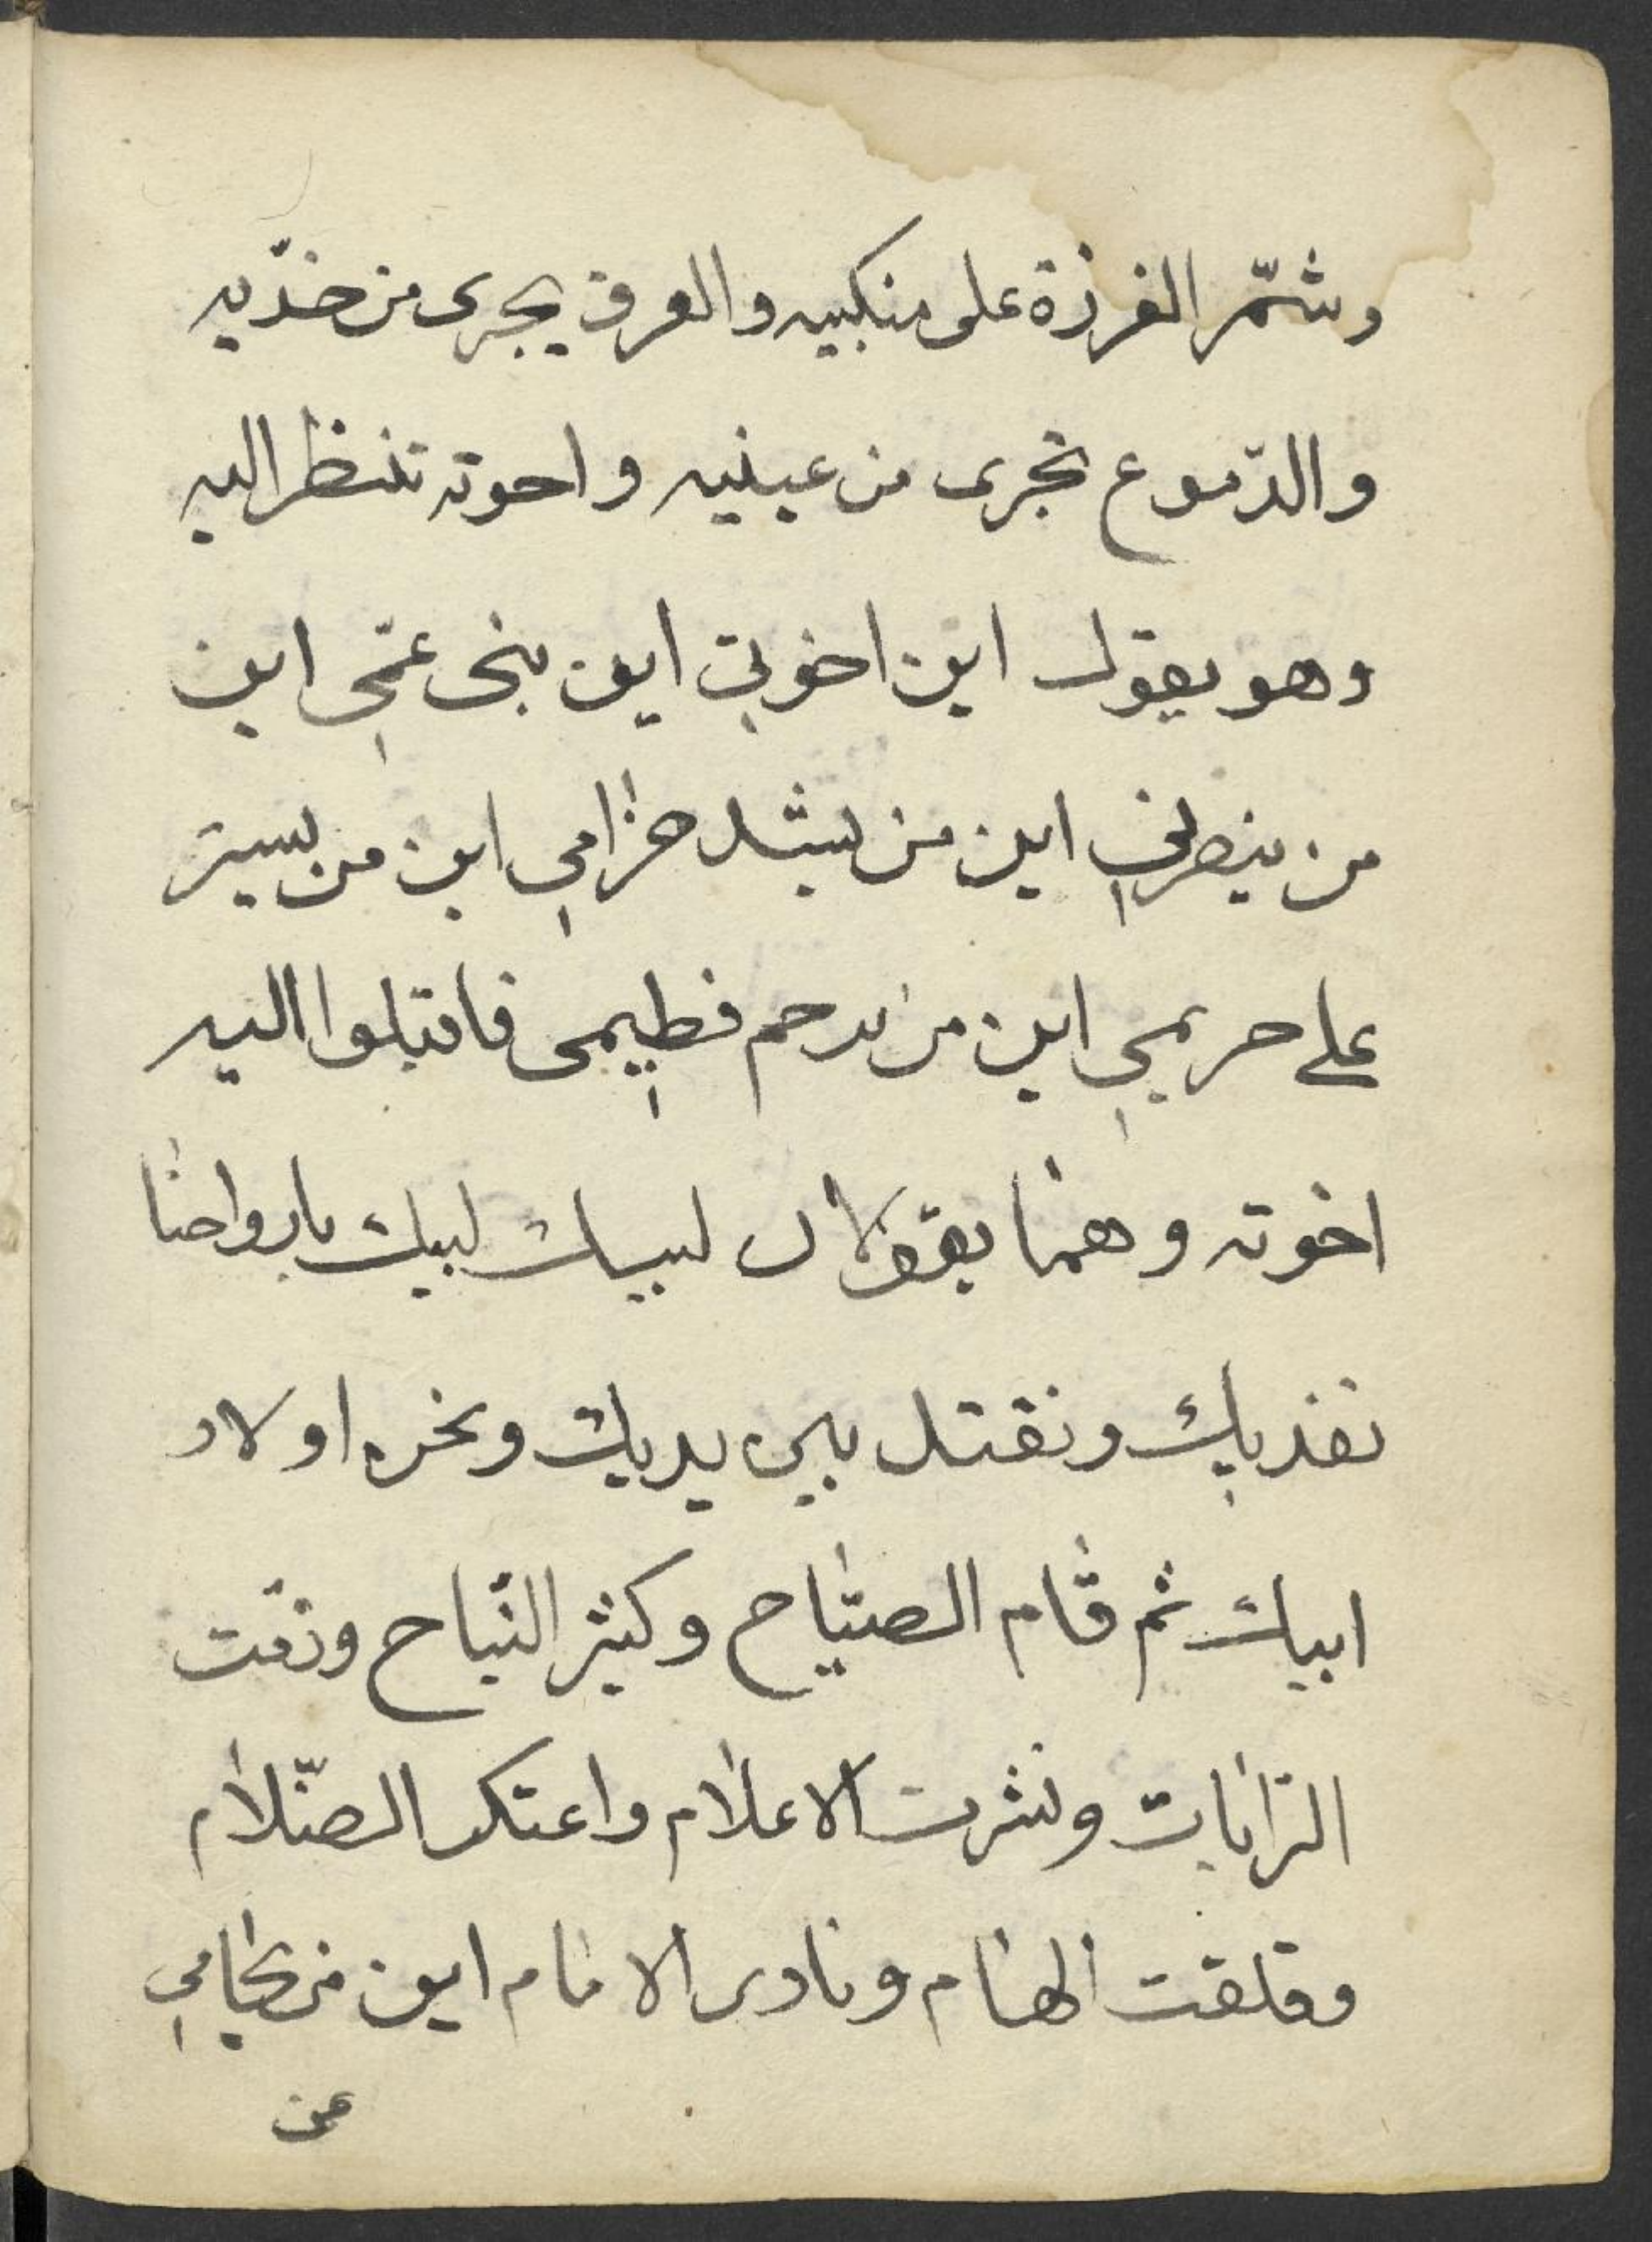 وشمّر الغرزة على منكبيه والعرق يجرى من خدّيه
والدّموع تجرى من عينيه واحوته تنظر اليه
وهو يقول اين اخوتي اين بنى عمّي اين
من ينصرني اين من يشد حزامي اين من يستر
على حريمي اين من يرحم فطيمى فاقبلوا اليه
اخوته وهما يقولان لبيك لبيك بارواحنا
نفديك ونقتل بين يديك ونحن اولاد
ابيك ثم قام الصيّاح وكثر النّباح وزفّت
الرّايات ونشرت الاعلام واعتكر الضّلام
وقلقت الهام ونادى الامام اين من يحامي
عن